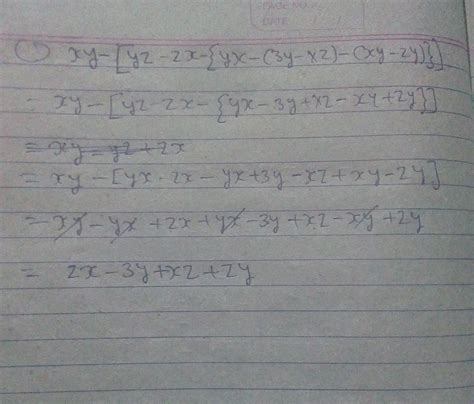 PAGE NO.
DATE / /
① xy-[yz-zx-{yx-(3y-xz)-(xy-zy)}]
= xy-[yz-zx-{yx-3y+xz-xy+zy}]
= xy-yz+zx
= xy-[yx-zx-yx+3y-xz+xy-zy]
= xy-yx+zx+yx-3y+xz-xy+zy
= zx-3y+xz+zy